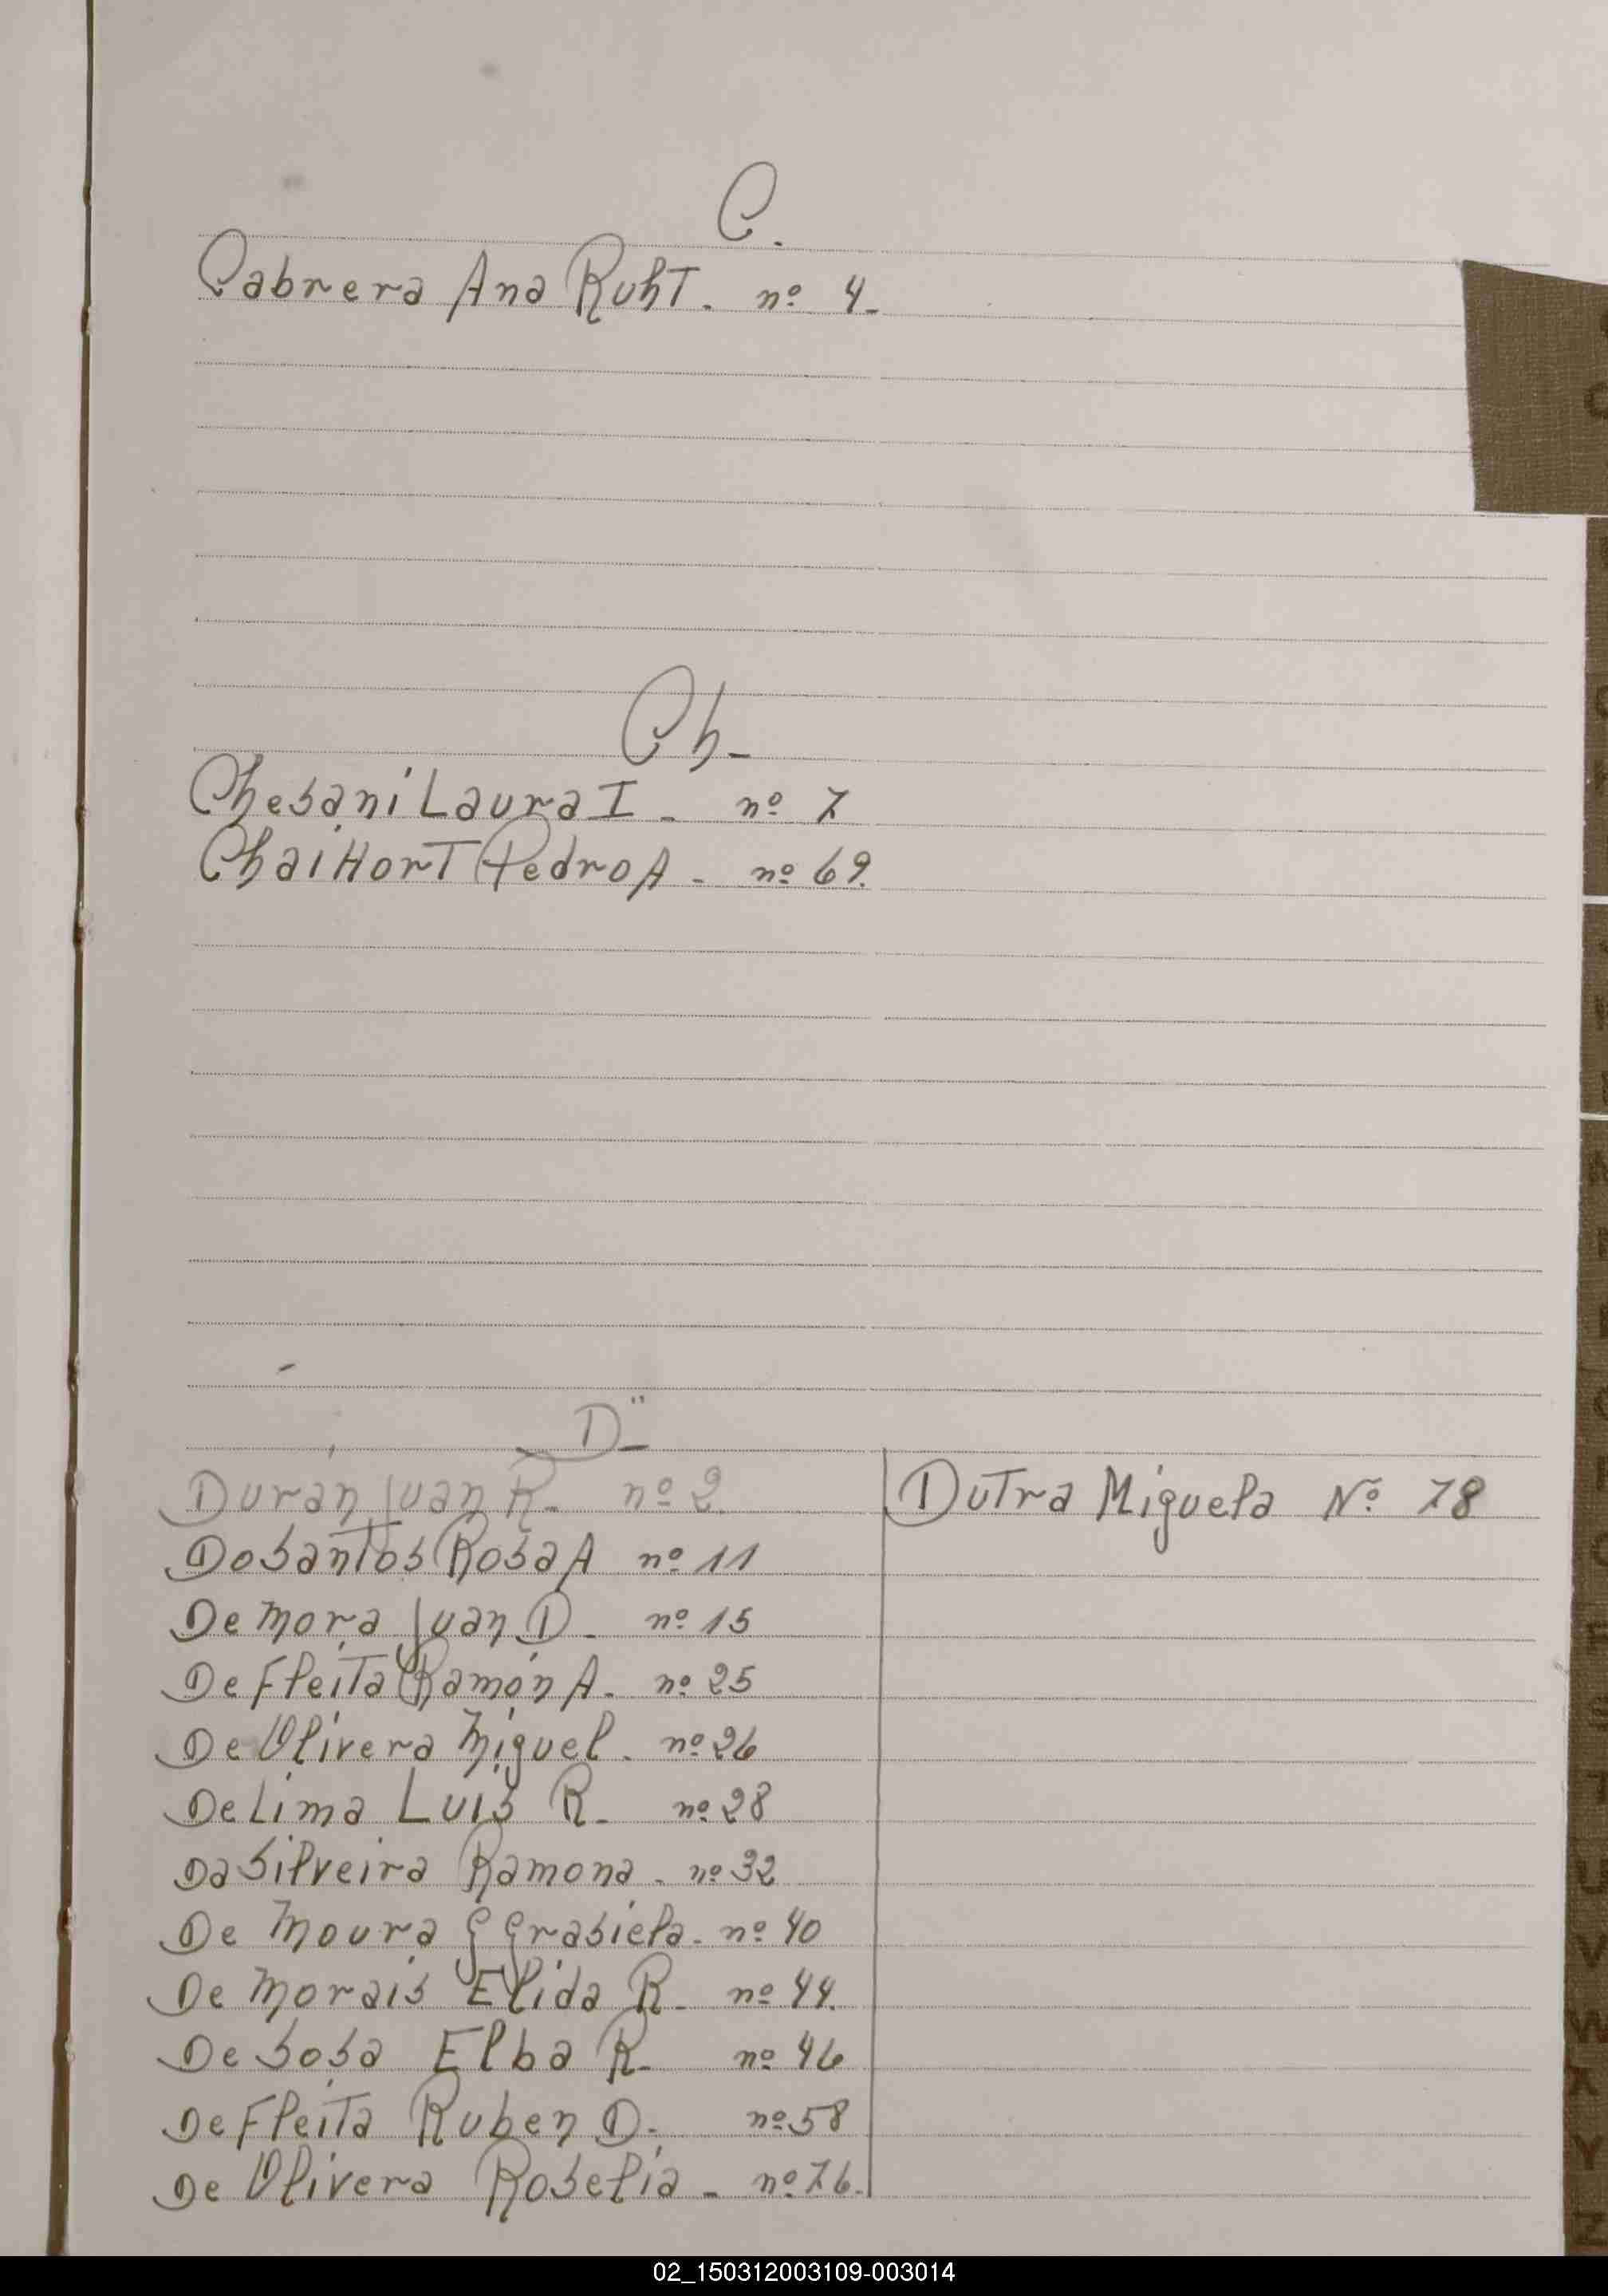 C.
Cabrera Ana Ruht. nº 4.
Ch-
Chesani Laura I - nº 7
Chaihort Pedro A - nº 69.
"D"-
Durán Juan R. nº 2.
Dosantos Rosa A nº 11
De Mora Juan D. nº 15
De Fleita Ramón A. nº 25
De Olivera Miguel. nº 26
De Lima Luis R. nº 28
Da Silveira Ramona. nº 32
De Moura G Grasiela. nº 40
De Morais Elida R. nº 44.
De Sosa Elba R. nº 46
De Fleita Ruben D. nº 58
De Olivera Roselia - nº 76.
Dutra Miguela Nº 78
02_150312003109-003014